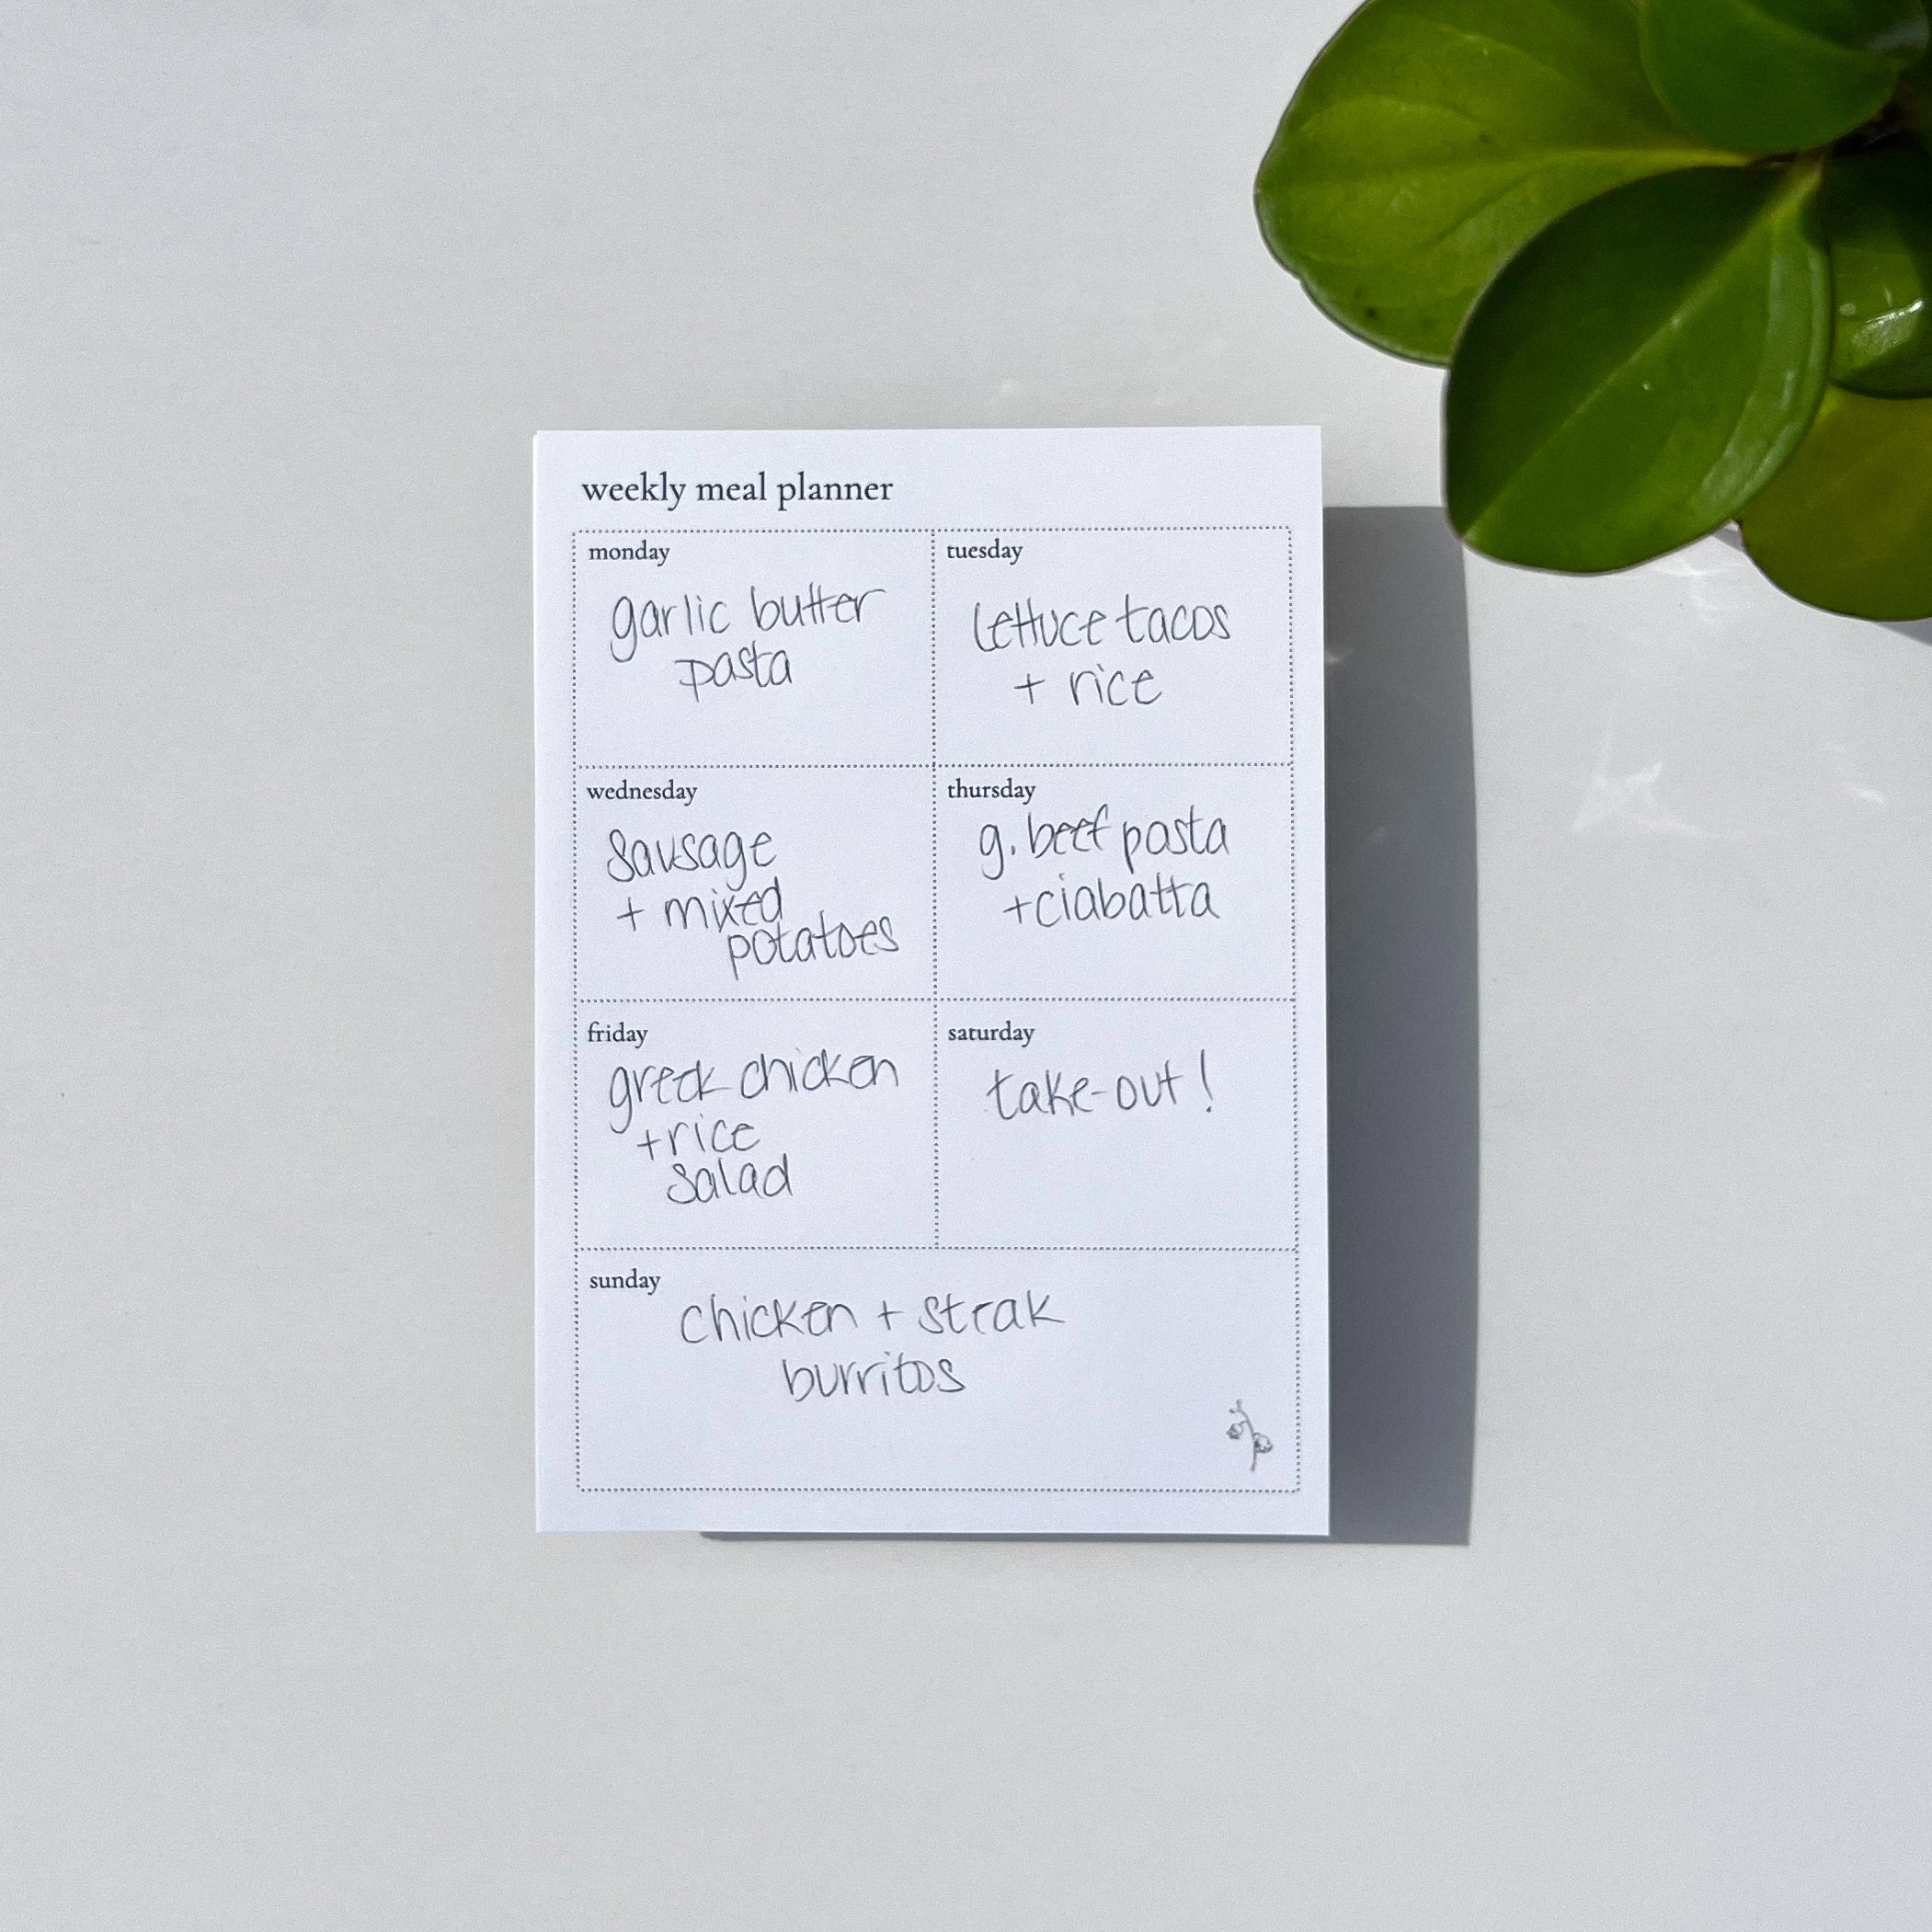 weekly meal planner
monday
garlic butter
pasta
tuesday
lettuce tacos
+ rice
wednesday
sausage
+ mixed
potatoes
thursday
g. beef pasta
+ciabatta
friday
greek chicken
+rice
salad
saturday
take-out!
sunday
chicken + steak
burritos